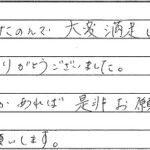 たのんで 大変満足し
りがとうございました。
があれば 是非お願
願いします。